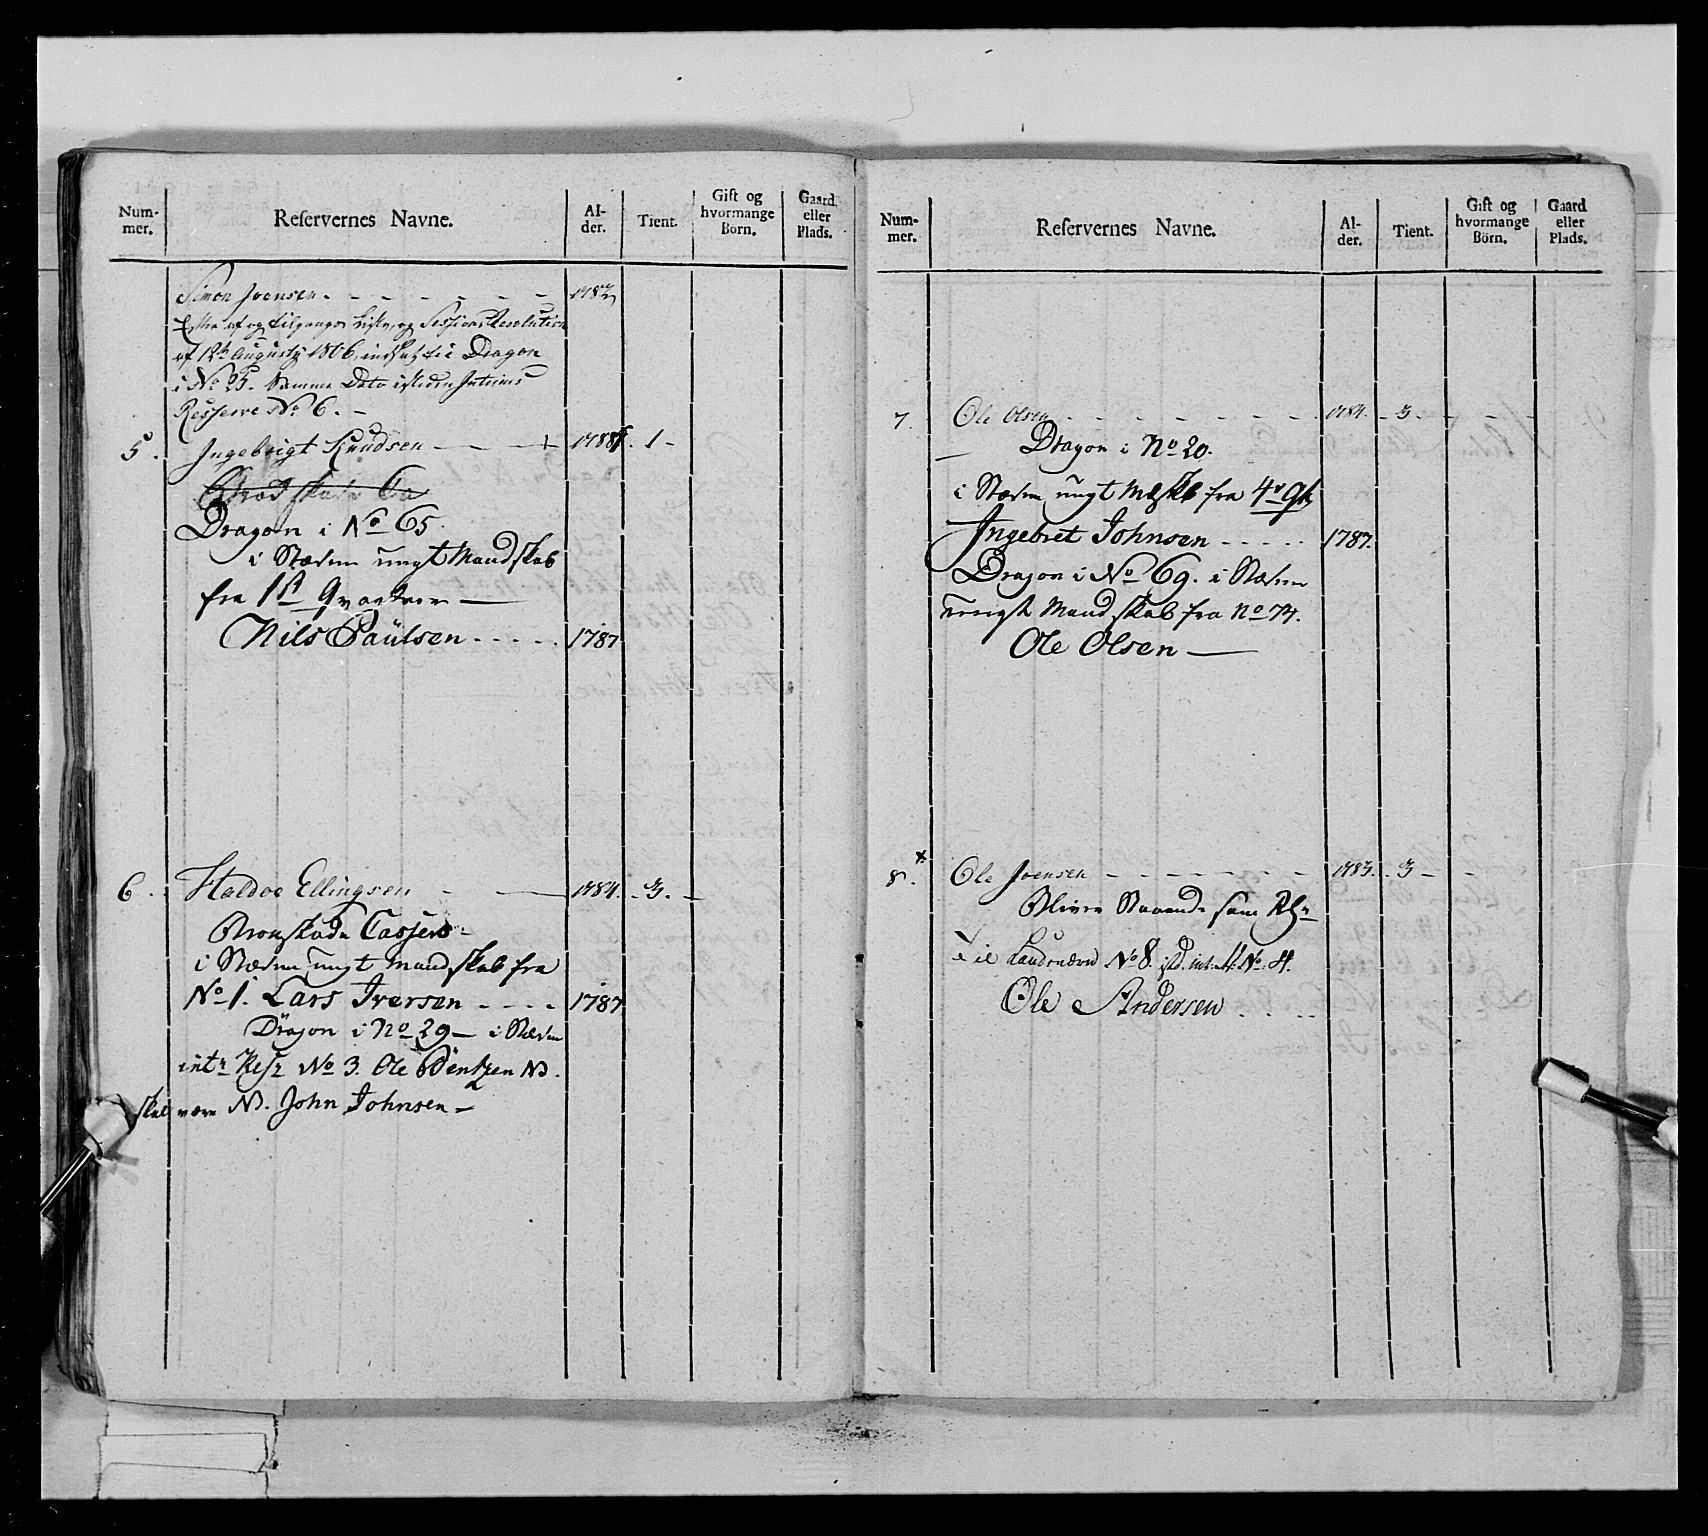 Num-
mer.
Reservernes Navne.
Al-
der.
Tient.
Gift og
hvormange
Børn.
Gaard
eller
Plads.
Simon Joensen 1782
Efter af og tilgangs Liste og Sessions Resolution
af 12te Augusty 1806, indsat til Dragon
i No 25. Samme Dato isteden Interims
Resserve No 6.
5. Ingebrigt Knudsen 1788. 1
Dragon i No 65
i Stæden ungt Mandskab
fra 1st Qvarteer
Nils Paülsen 1787
6. Haldoe Ellingsen 1784. 3.
Brøstskade Casseres
i Stæden ungt mandskab fra
No 1. Lars Iversen 1787
Dragon i No 29 i Stæden
intr Resr No 3. Ole Bentzen NB.
skal være NB. John Johnsen
Num-
mer.
Reservernes Navne.
Al-
der.
Tient.
Gift og
hvormange
Börn.
Gaard
eller
Plads.
7. Ole Olsen 1784. 3.
Dragon i No 20.
i Stæden ungt Mdskb fra 4r
Ingebret Johnsen 1787.
Dragon i No 69. i Stæden
ungt Mandskab fra No 74.
Ole Olsen
8. Ole Joensen 1783. 3
Bliver Staaende som
til Landeværn No 8. No 4.
Ole Andersen